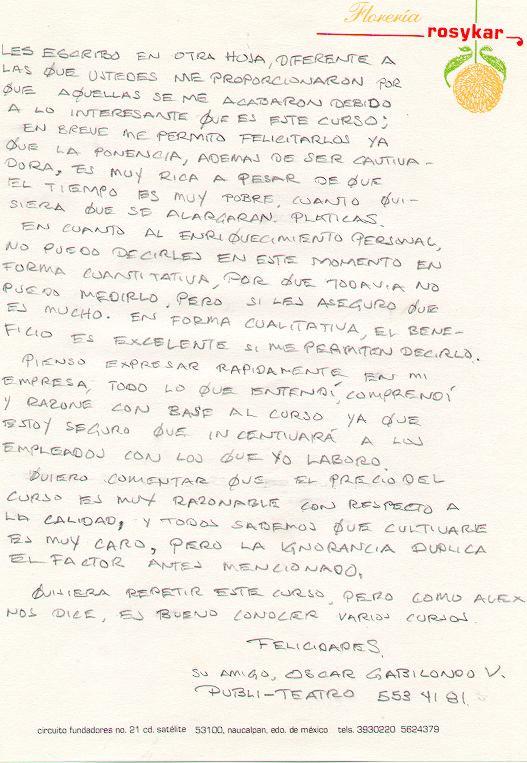 Florería
rosykar
LES ESCRIBO EN OTRA HOJA, DIFERENTE A
LAS QUE USTEDES ME PROPORCIONARON POR
QUE AQUELLAS SE ME ACABARON DEBIDO
A LO INTERESANTE QUE ES ESTE CURSO;
EN BREVE ME PERMITO FELICITARLOS YA
QUE LA PONENCIA, ADEMAS DE SER CAUTIVA-
DORA, ES MUY RICA A PESAR DE QUE
EL TIEMPO ES MUY POBRE. CUANTO QUI-
SIERA QUE SE ALARGARAN PLATICAS.
EN CUANTO AL ENRIQUECIMIENTO PERSONAL,
NO PUEDO DECIRLES EN ESTE MOMENTO EN
FORMA CUANTITATIVA, POR QUE TODAVIA NO
PUEDO MEDIRLO, PERO SI LES ASEGURO QUE
ES MUCHO. EN FORMA CUALITATIVA, EL BENE-
FICIO ES EXCELENTE SI ME PERMITEN DECIRLO.
PIENSO EXPRESAR RAPIDAMENTE EN MI
EMPRESA, TODO LO QUE ENTENDÍ, COMPRENDÍ
Y RAZONE CON BASE AL CURSO YA QUE
ESTOY SEGURO QUE INCENTIVARÁ A LOS
EMPLEADOS CON LOS QUE YO LABORO.
QUIERO COMENTAR QUE EL PRECIO DEL
CURSO ES MUY RAZONABLE CON RESPECTO A
LA CALIDAD, Y TODOS SABEMOS QUE CULTIVARSE
ES MUY CARO, PERO LA IGNORANCIA DUPLICA
EL FACTOR ANTES MENCIONADO.
QUISIERA REPETIR ESTE CURSO, PERO COMO ALEX
NOS DICE, ES BUENO CONOCER VARIOS CURSOS.
FELICIDADES.
SU AMIGO, OSCAR GABILONDO V.
PUBLI-TEATRO 553 41 81.
circuito fundadores no. 21 cd. satélite 53100, naucalpan, edo. de méxico tels. 3930220 5624379